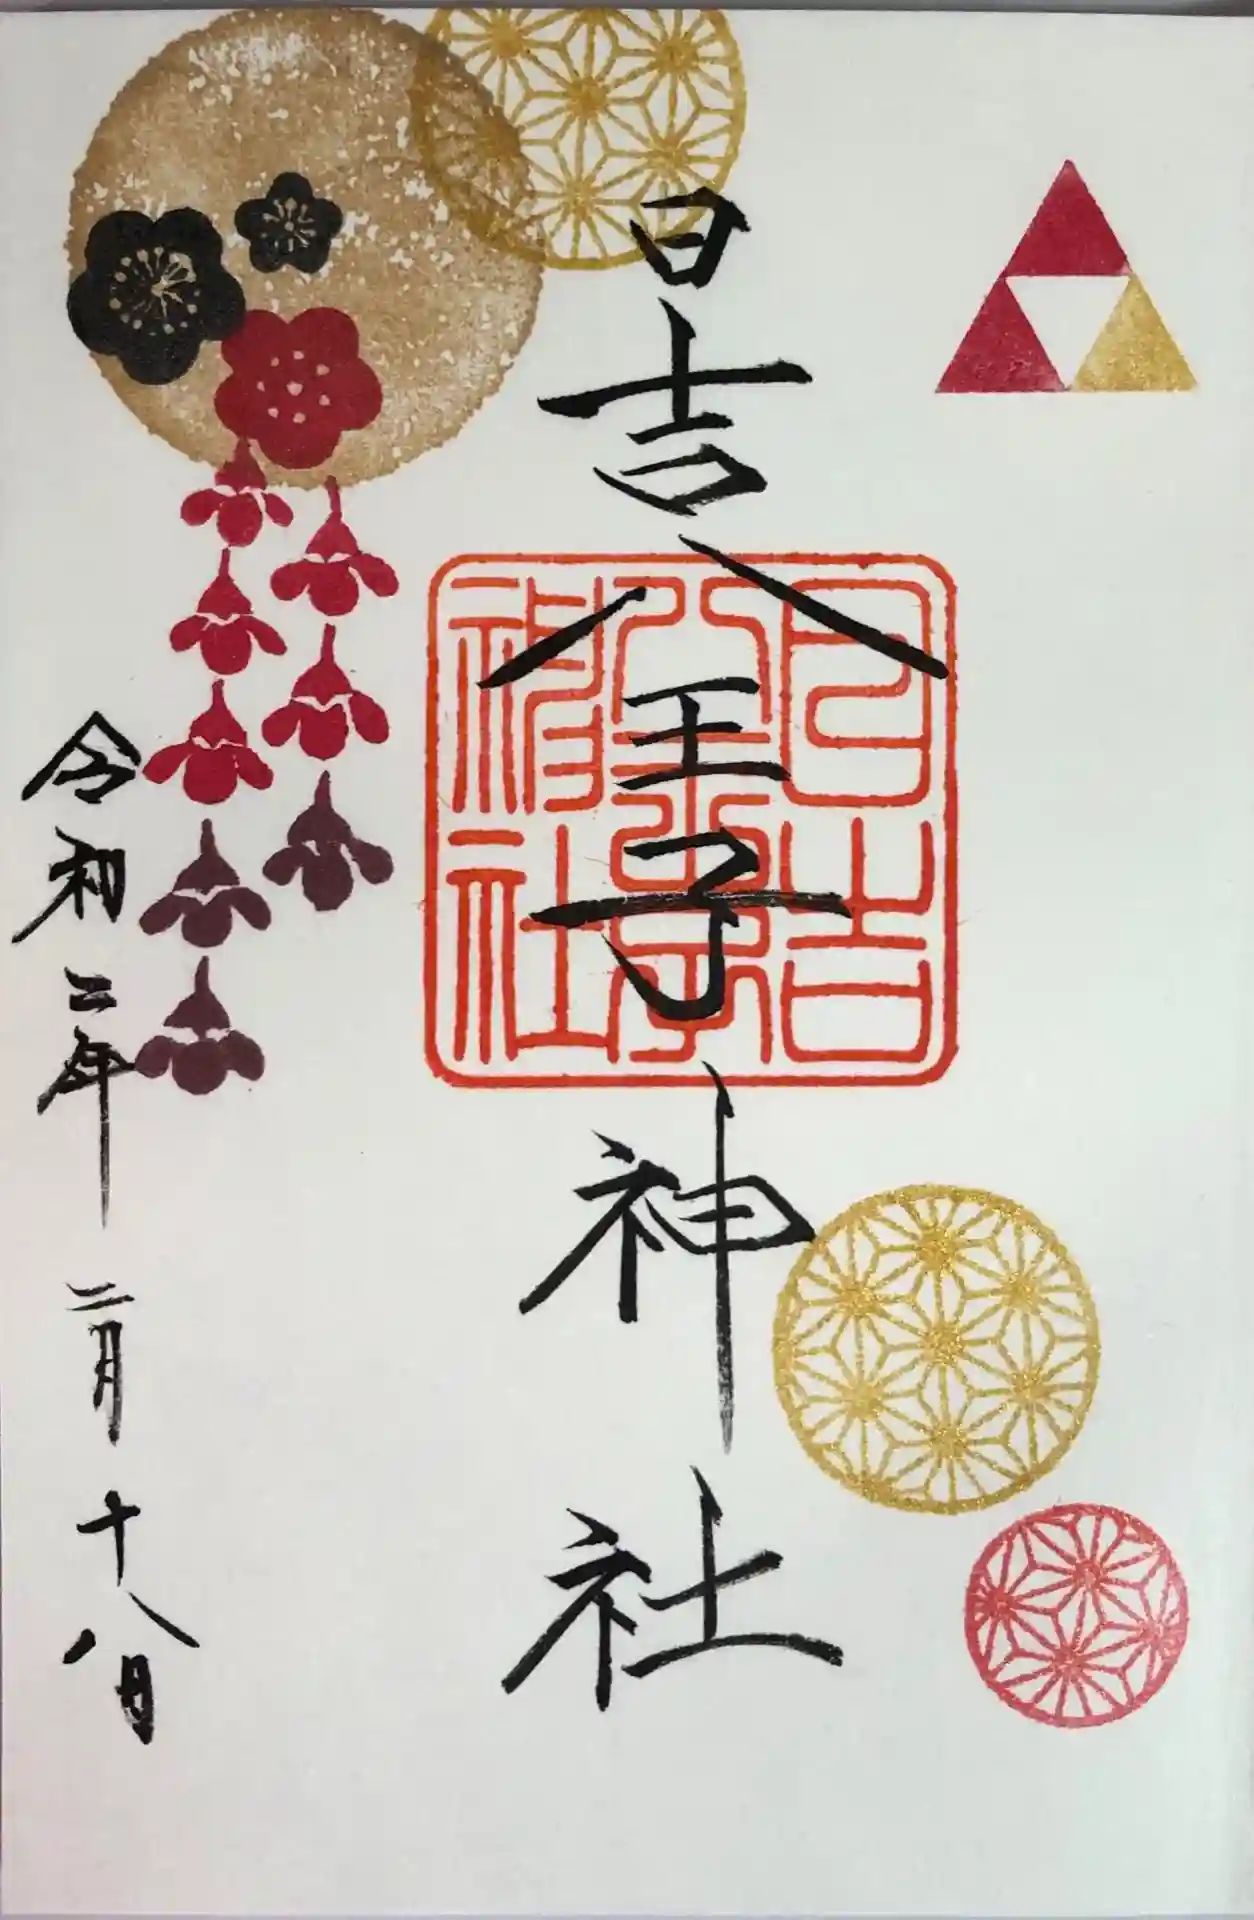 日吉八王子神社
日吉
八王子
神社
令和二年二月十八日